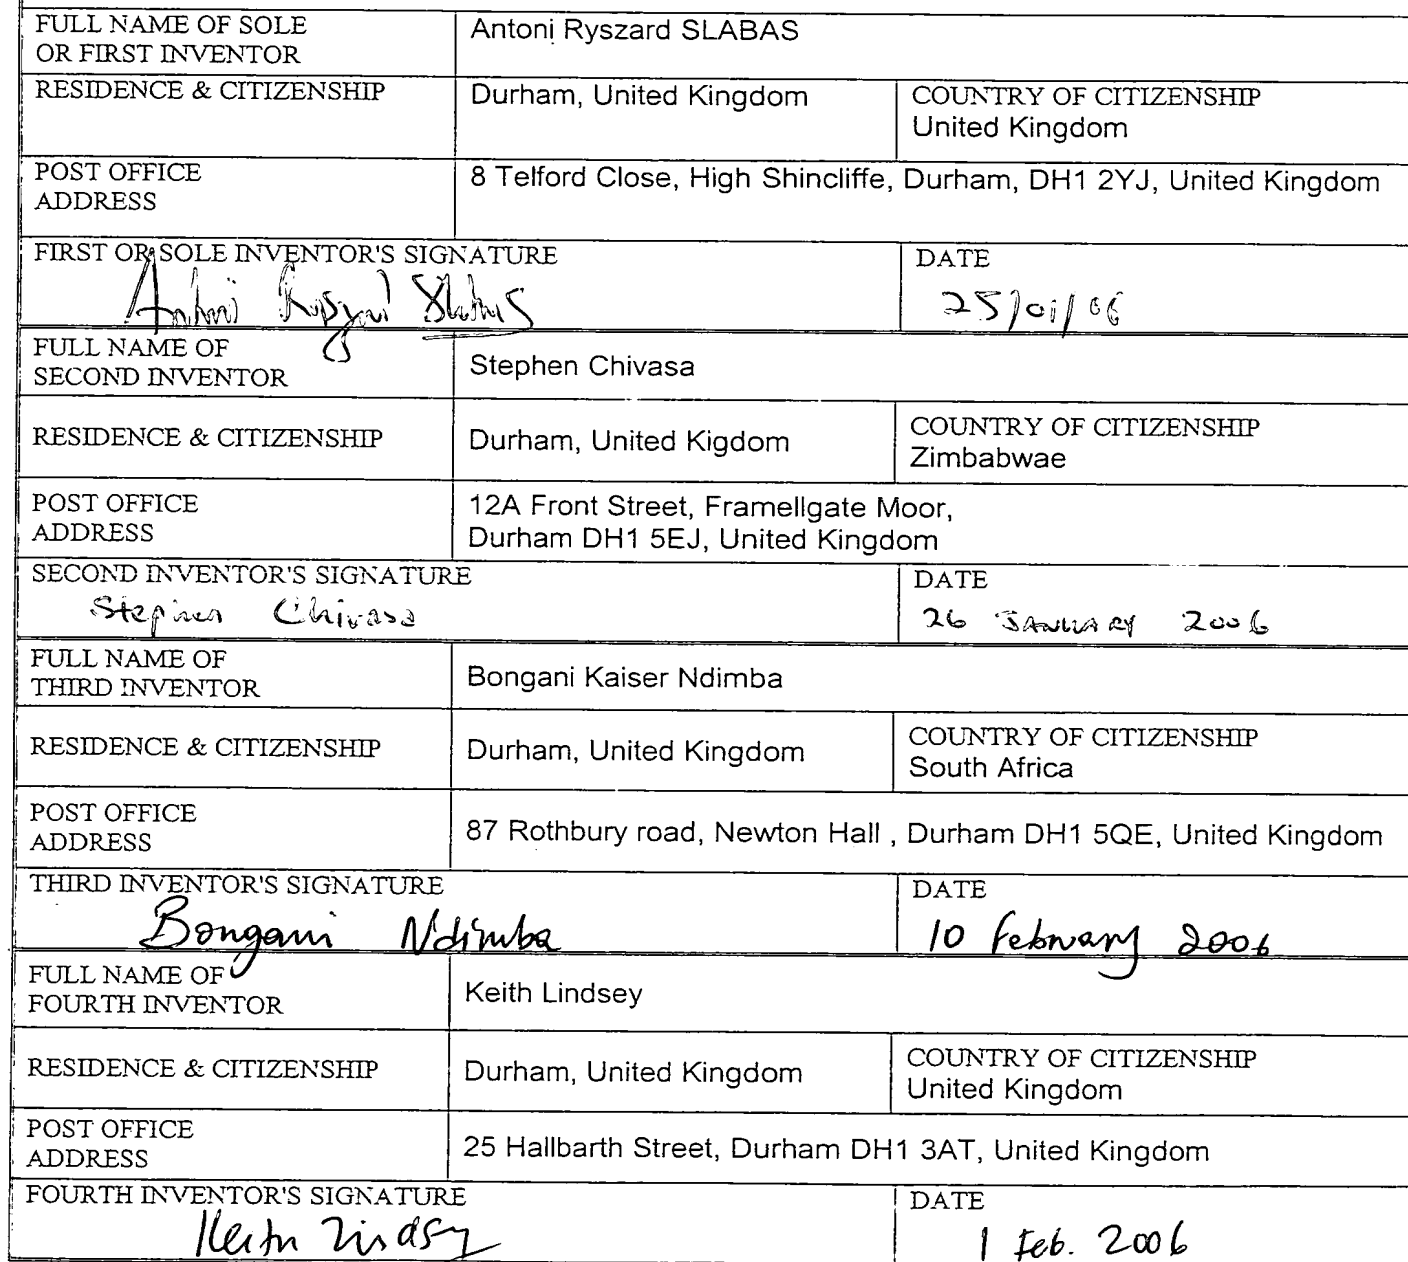 FULL NAME OF SOLE
OR FIRST INVENTOR
Antoni Ryszard SLABAS
RESIDENCE & CITIZENSHIP
Durham, United Kingdom
COUNTRY OF CITIZENSHIP
United Kingdom
POST OFFICE
ADDRESS
8 Telford Close, High Shincliffe, Durham, DH1 2YJ, United Kingdom
FIRST OR SOLE INVENTOR'S SIGNATURE
Antoni Ryszard Slabas
DATE
25/01/06
FULL NAME OF
SECOND INVENTOR
Stephen Chivasa
RESIDENCE & CITIZENSHIP
Durham, United Kigdom
COUNTRY OF CITIZENSHIP
Zimbabwae
POST OFFICE
ADDRESS
12A Front Street, Framellgate Moor,
Durham DH1 5EJ, United Kingdom
SECOND INVENTOR'S SIGNATURE
Stephen Chivasa
DATE
26 JANUARY 2006
FULL NAME OF
THIRD INVENTOR
Bongani Kaiser Ndimba
RESIDENCE & CITIZENSHIP
Durham, United Kingdom
COUNTRY OF CITIZENSHIP
South Africa
POST OFFICE
ADDRESS
87 Rothbury road, Newton Hall , Durham DH1 5QE, United Kingdom
THIRD INVENTOR'S SIGNATURE
Bongani Ndimba
DATE
10 February 2006
FULL NAME OF
FOURTH INVENTOR
Keith Lindsey
RESIDENCE & CITIZENSHIP
Durham, United Kingdom
COUNTRY OF CITIZENSHIP
United Kingdom
POST OFFICE
ADDRESS
25 Hallbarth Street, Durham DH1 3AT, United Kingdom
FOURTH INVENTOR'S SIGNATURE
Keith Lindsey
DATE
1 Feb. 2006